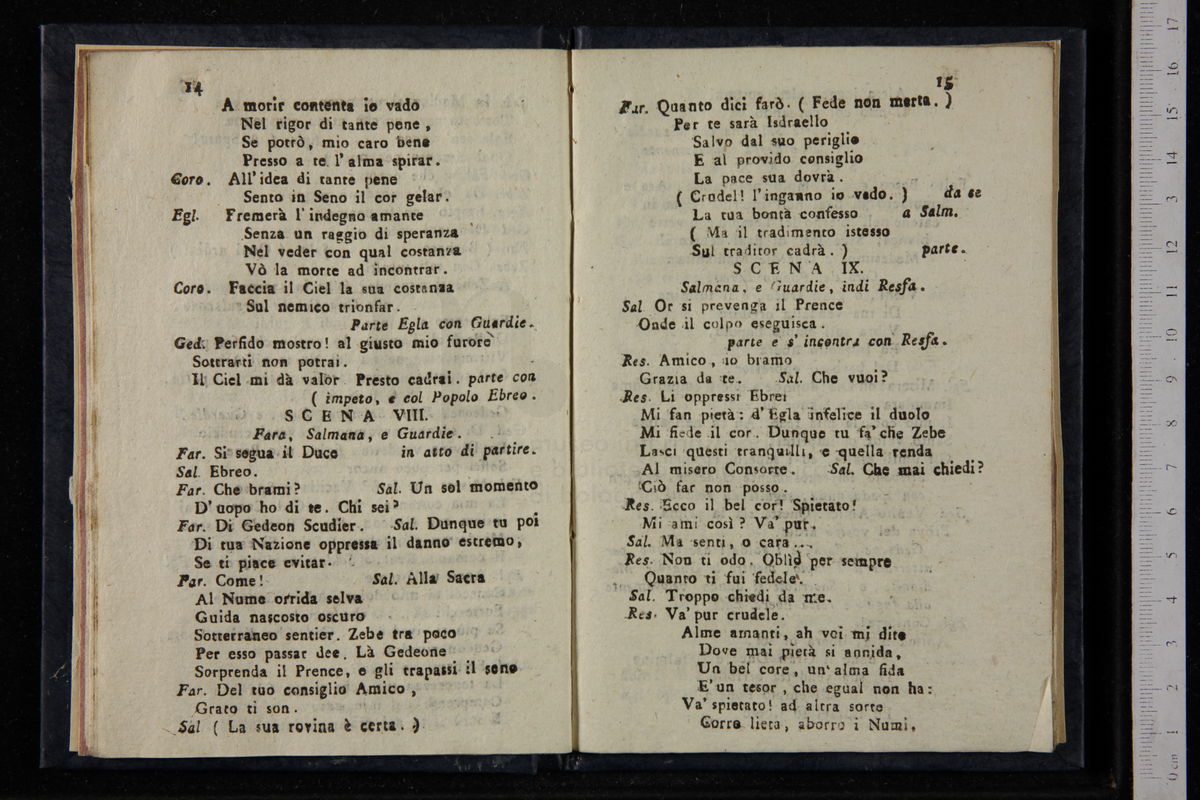 14
A morir contenta io vado
Nel rigor di tante pene,
Se potrò, mio caro bene
Presso a te l'alma spirar.
Coro. All'idea di tante pene
Sento in Seno il cor gelar.
Egl. Fremerà l'indegno amante
Senza un raggio di speranza
Nel veder con qual costanza
Vò la morte ad incontrar.
Coro. Faccia il Ciel la sua costanza
Sul nemico trionfar.
Parte Egla con Guardie.
Ged. Perfido mostro! al giusto mio furore
Sottrarti non potrai.
Il Ciel mi dà valor Presto cadrai. parte con
( impeto, e col Popolo Ebreo.
SCENA VIII.
Fara, Salmana, e Guardie.
Far. Si segua il Duce in atto di partire.
Sal. Ebreo.
Far. Che brami? Sal. Un sol momento
D'uopo ho di te. Chi sei?
Far. Di Gedeon Scudier. Sal. Dunque tu poi
Di tua Nazione oppressa il danno estremo,
Se ti piace evitar.
Far. Come! Sal. Alla Sacra
Al Nume orrida selva
Guida nascosto oscuro
Sotterraneo sentier. Zebe tra poco
Per esso passar dee. Là Gedeone
Sorprenda il Prence, e gli trapassi il seno
Far. Del tuo consiglio Amico,
Grato ti son.
Sal ( La sua rovina è certa. )
15
Far. Quanto dici farò. ( Fede non merta. )
Per te sarà Isdraello
Salvo dal suo periglio
E al provido consiglio
La pace sua dovrà.
( Crudel! l'inganno io vedo. ) da se
La tua bontà confesso a Salm.
( Ma il tradimento istesso
Sul traditor cadrà. ) parte.
SCENA IX.
Salmana, e Guardie, indi Resfa.
Sal Or si prevenga il Prence
Onde il colpo eseguisca.
parte e s'incontra con Resfa.
Res. Amico, io bramo
Grazia da te. Sal. Che vuoi?
Res. Li oppressi Ebrei
Mi fan pietà: d'Egla infelice il duolo
Mi fiede il cor. Dunque tu fa' che Zebe
Lasci questi tranquilli, e quella renda
Al misero Consorte. Sal. Che mai chiedi?
Ciò far non posso.
Res. Ecco il bel cor! Spietato!
Mi ami così? Va' pur.
Sal. Ma senti, o cara ...
Res. Non ti odo. Oblìo per sempre
Quanto ti fui fedele.
Sal. Troppo chiedi da me.
Res. Va' pur crudele.
Alme amanti, ah voi mi dite
Dove mai pietà si annida,
Un bel core, un'alma fida
E'un tesor, che egual non ha:
Va' spietato! ad altra sorte
Corro lieta, aborro i Numi,